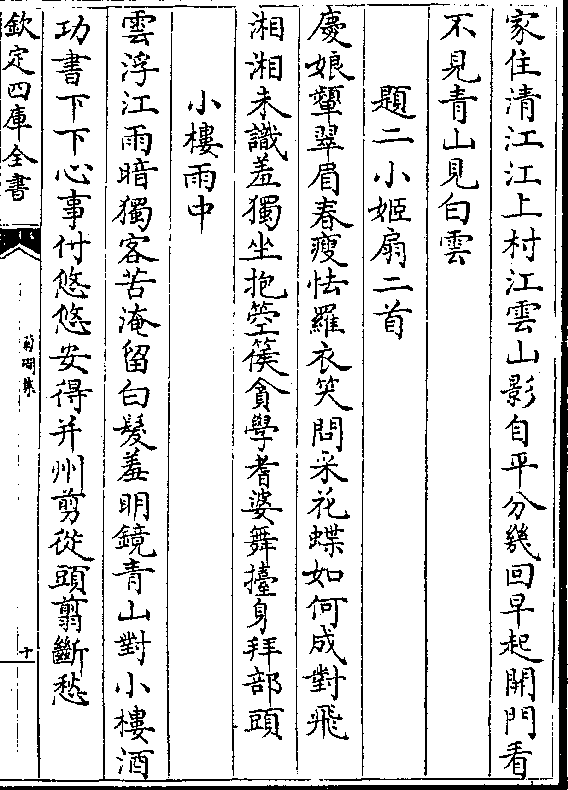 家住清江江上村江雲山影自平分幾回早起開門看
不見青山見白雲
題二小姬扇二首
慶娘顰翠眉春瘦怯羅衣笑問采花蝶如何成對飛
湘湘未識羞獨坐抱箜篌貪學耆婆舞擡身拜部頭
小樓雨中
雲浮江雨暗獨客苦淹留白髮羞明鏡青山對小樓酒
功書下下心事付悠悠安得并州剪從頭翦斷愁
欽定四庫全書
菊磵集
十